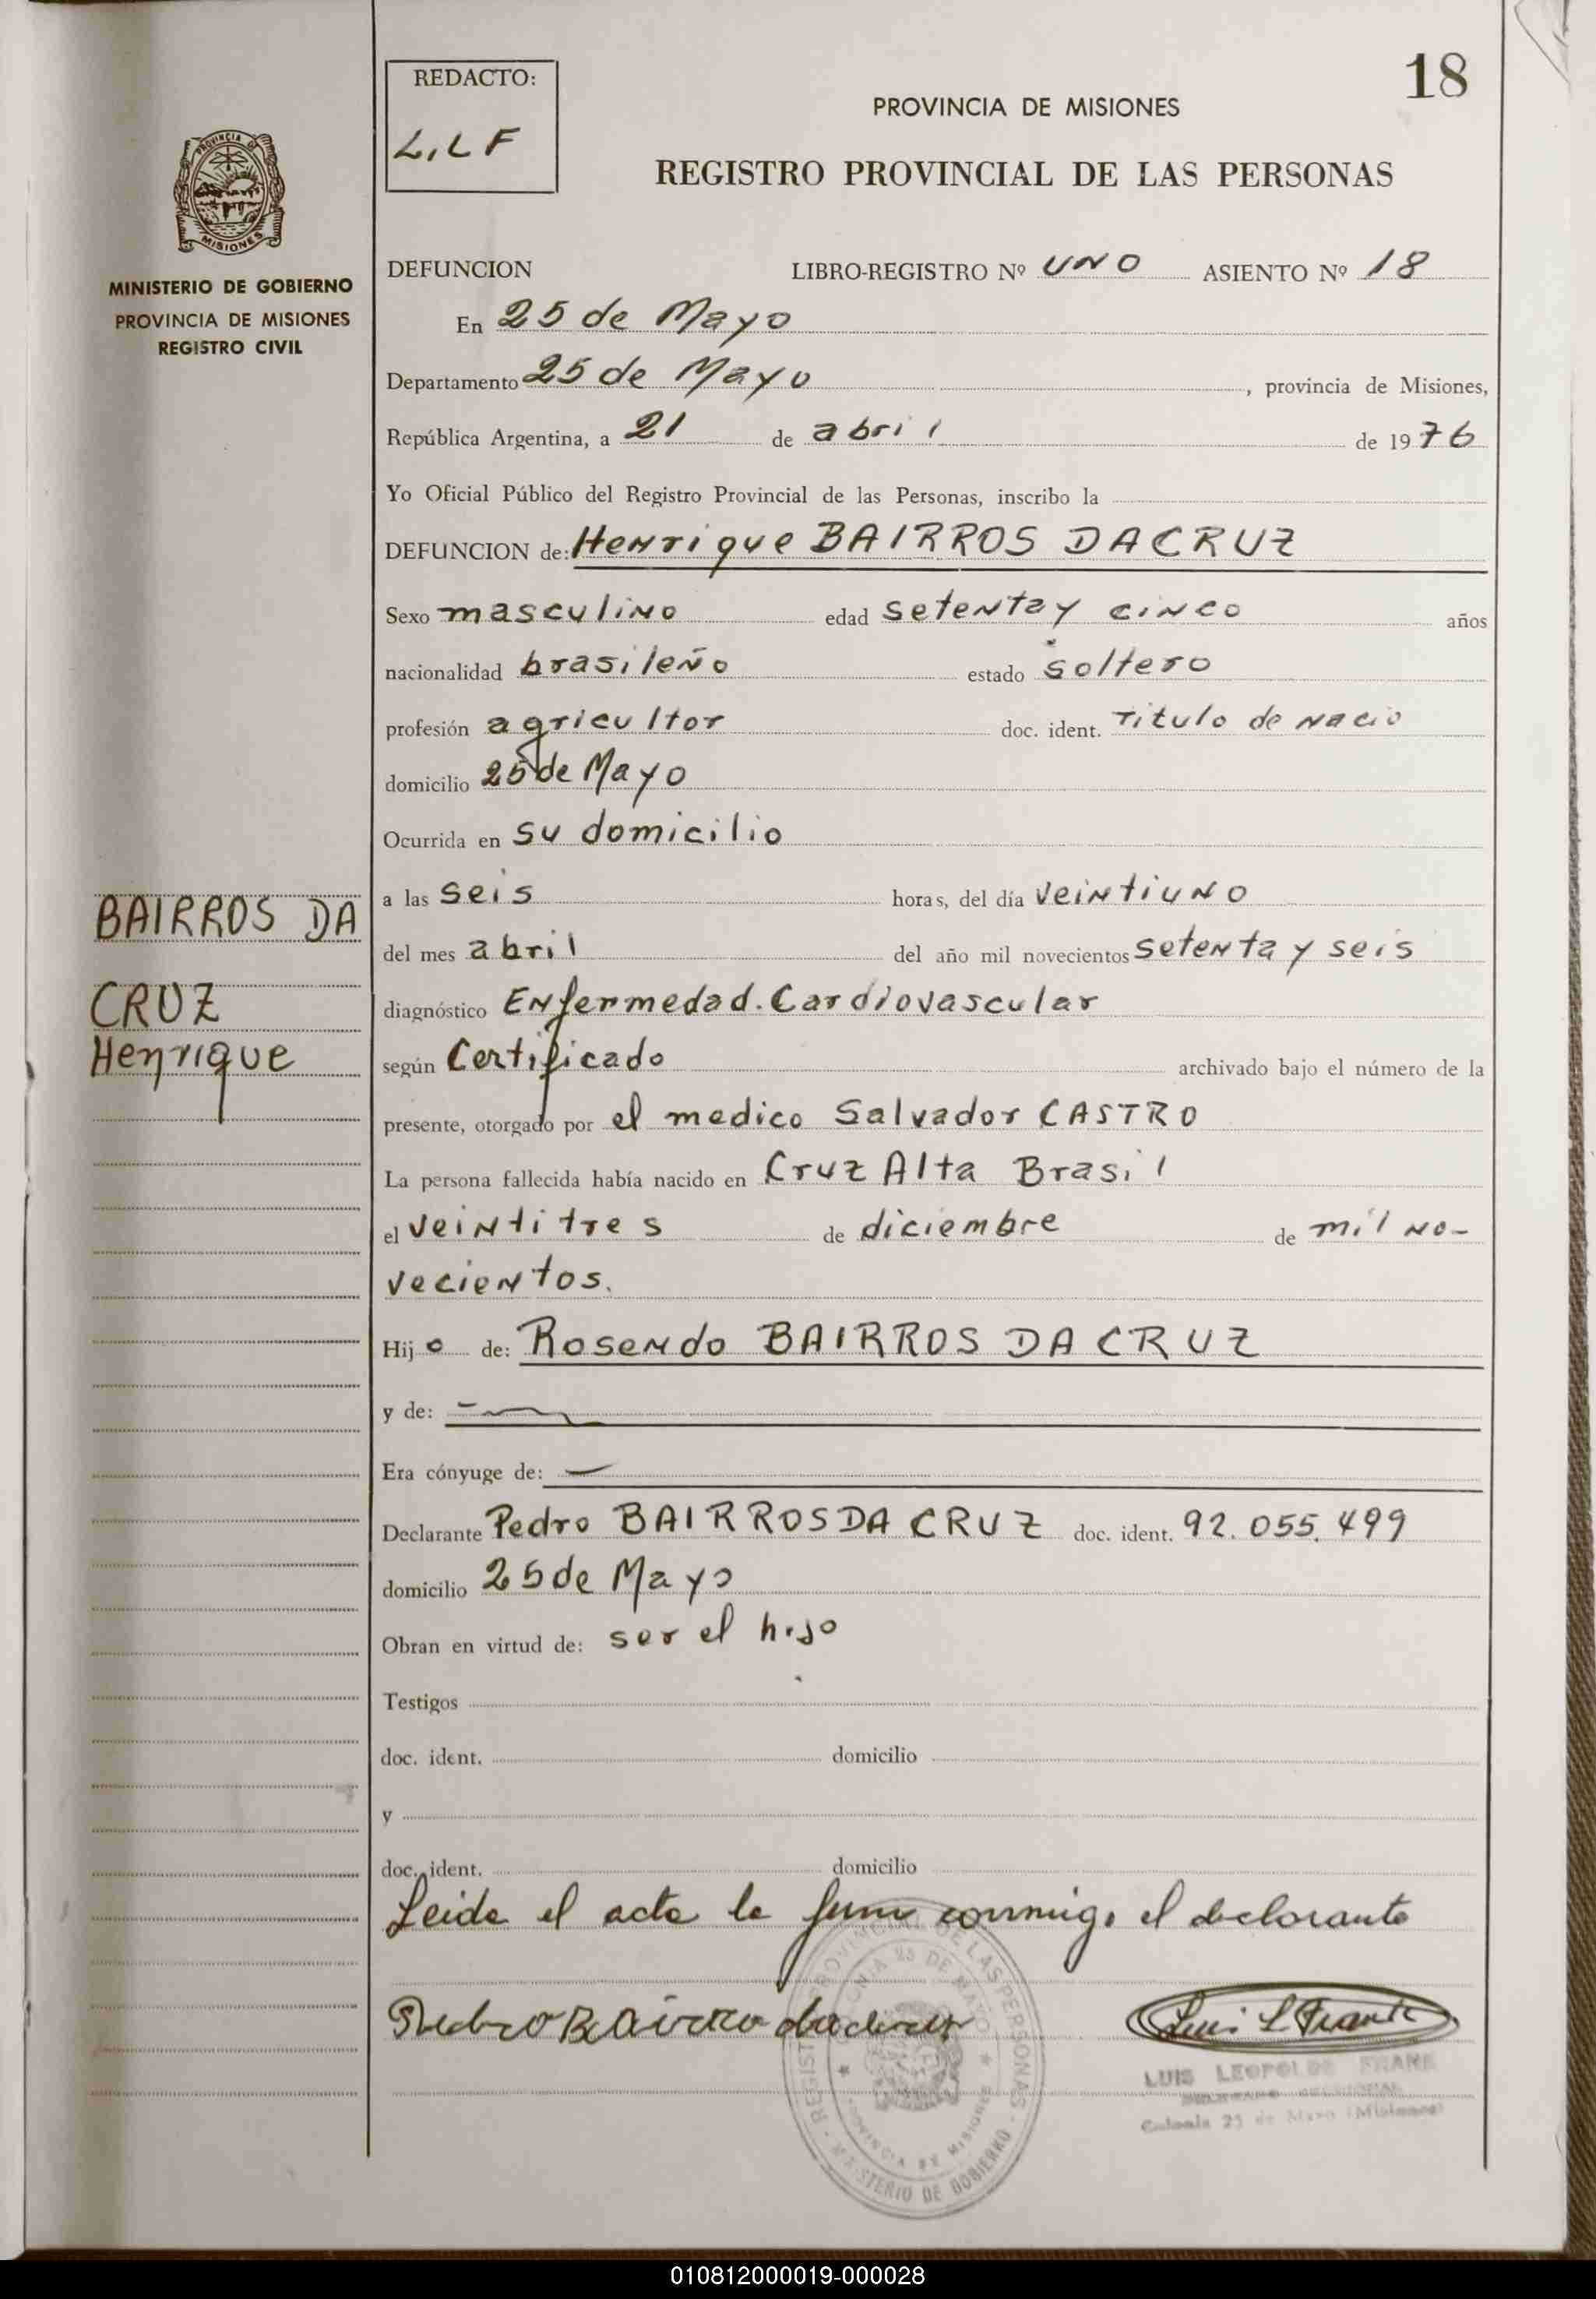 18
REDACTO:
L.L F
PROVINCIA DE MISIONES
REGISTRO PROVINCIAL DE LAS PERSONAS
PROVINCIA DE
MISIONES
MINISTERIO DE GOBIERNO
PROVINCIA DE MISIONES
REGISTRO CIVIL
DEFUNCION LIBRO-REGISTRO Nº UNO ASIENTO Nº 18
En 25 de Mayo
Departamento 25 de Mayo, provincia de Misiones,
República Argentina, a 21 de abril de 1976
Yo Oficial Público del Registro Provincial de las Personas, inscribo la
DEFUNCION de: Henrique BAIRROS DA CRUZ
Sexo masculino edad setenta y cinco años
nacionalidad brasileño estado soltero
profesión agricultor doc. ident. Titulo de nacio
domicilio 25 de Mayo
Ocurrida en su domicilio
a las seis horas, del día veintiuno
del mes abril del año mil novecientos setenta y seis
diagnóstico Enfermedad. Cardiovascular
según Certificado archivado bajo el número de la
presente, otorgado por el medico Salvador CASTRO
La persona fallecida había nacido en Cruz Alta Brasil
el veintitres de diciembre de mil no-
vecientos.
Hijo de: Rosendo BAIRROS DA CRUZ
y de: —
Era cónyuge de: —
Declarante Pedro BAIRROS DA CRUZ doc. ident. 92.055.499
domicilio 25 de Mayo
Obran en virtud de: ser el hijo
Testigos
doc. ident. domicilio
y
doc. ident. domicilio
BAIRROS DA
CRUZ
Henrique
Leida el acta la firma conmigo el declarante
REGISTRO PROVINCIAL DE LAS PERSONAS - MINISTERIO DE GOBIERNO
COLONIA 25 DE MAYO
PROVINCIA DE MISIONES
Luis L Frank
LUIS LEOPOLDO FRANK
Colonia 25 de Mayo (Misiones)
010812000019-000028